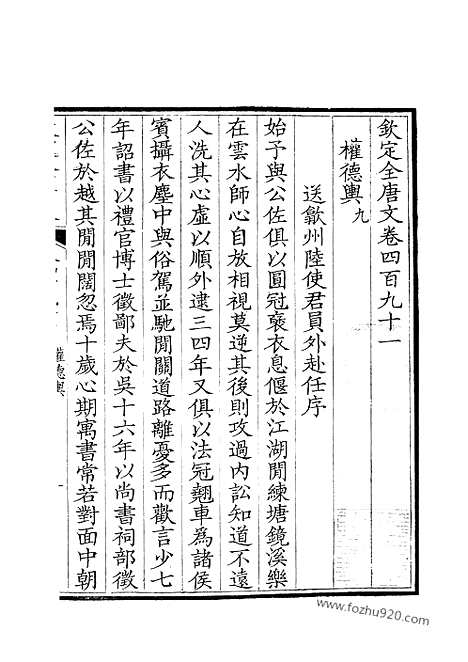 欽定全唐文卷四百九十一
權德輿九
送歙州陸使君員外赴任序
始予與公佐俱以圓冠褒衣息偃於江湖閒練塘鏡溪樂
在雲水師心自放相視莫逆其後則攻過內訟知道不遠
人洗其心虛以順外逮三四年又俱以法冠翹車爲諸侯
賓攝衣塵中與俗駕並馳閒關道路離憂多而歡言少七
年詔書以禮官博士徵鄙夫於吳十六年以尚書祠部徵
公佐於越其閒閒闊忽焉十歲心期寓書常若對面中朝
權德輿
一
www.fozhu920.com